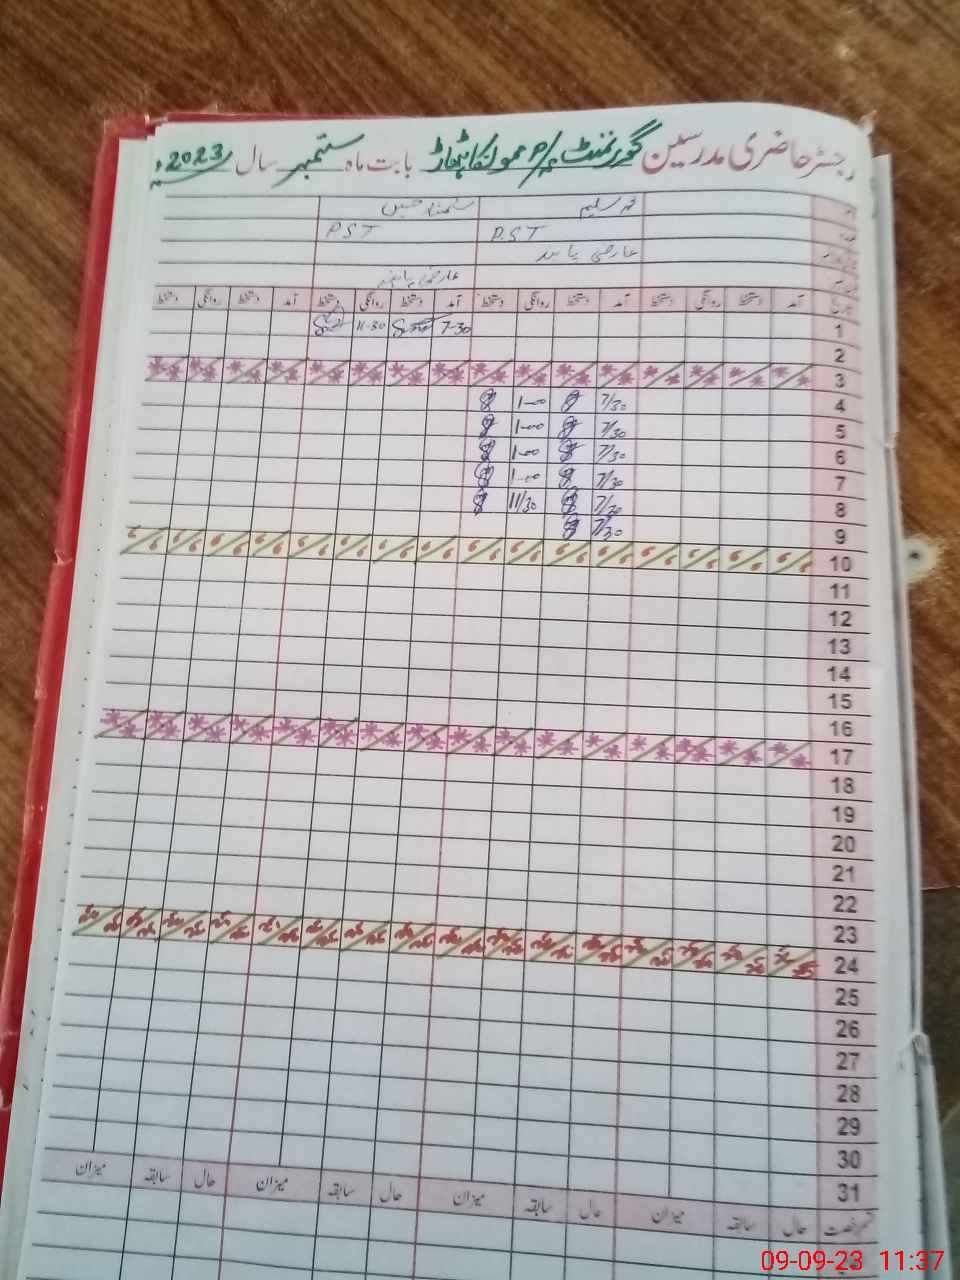 رجسٹر حاضری مدرسین گورنمنٹ بابت ماہ ستمبر سال 2023ء
محمد سلیم
P.S.T PST
عارضی پابند
عارضی پابند
آمد دستخط روانگی دستخط آمد دستخط روانگی دستخط آمد دستخط روانگی دستخط آمد دستخط روانگی دستخط
1 7-30 11-30
2
3
4 7/30 1-00
5 7/30 1-00
6 7/30 1-00
7 7/30 1-00
8 7/30 11/30
9 7/30
10
11
12
13
14
15
16
17
18
19
20
21
22
23
24
25
26
27
28
29
30
31
حال سابقہ میزان حال سابقہ میزان حال سابقہ میزان حال سابقہ میزان
09-09-23 11:37